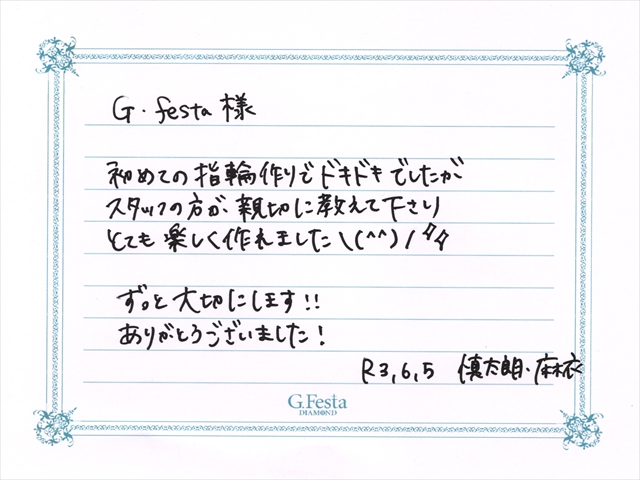 G.festa様
初めての指輪作りでドキドキでしたが
スタッフの方が親切に教えて下さり
とても楽しく作れました\(^^)/
ずっと大切にします!!
ありがとうございました!
R3,6,5 慎太朗・麻衣
G.Festa
DIAMOND